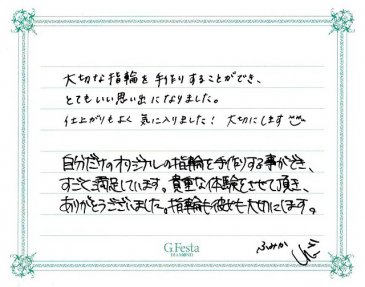 大切な指輪を手作りすることができ、
とてもいい思い出になりました。
仕上がりもよく気に入りました! 大切にします
自分だけのオリジナルの指輪を手作りする事ができ、
すごく満足しています。貴重な体験をさせて頂き、
ありがとうございました。指輪も彼女も大切にします。
G.Festa
DIAMOND
ふみか